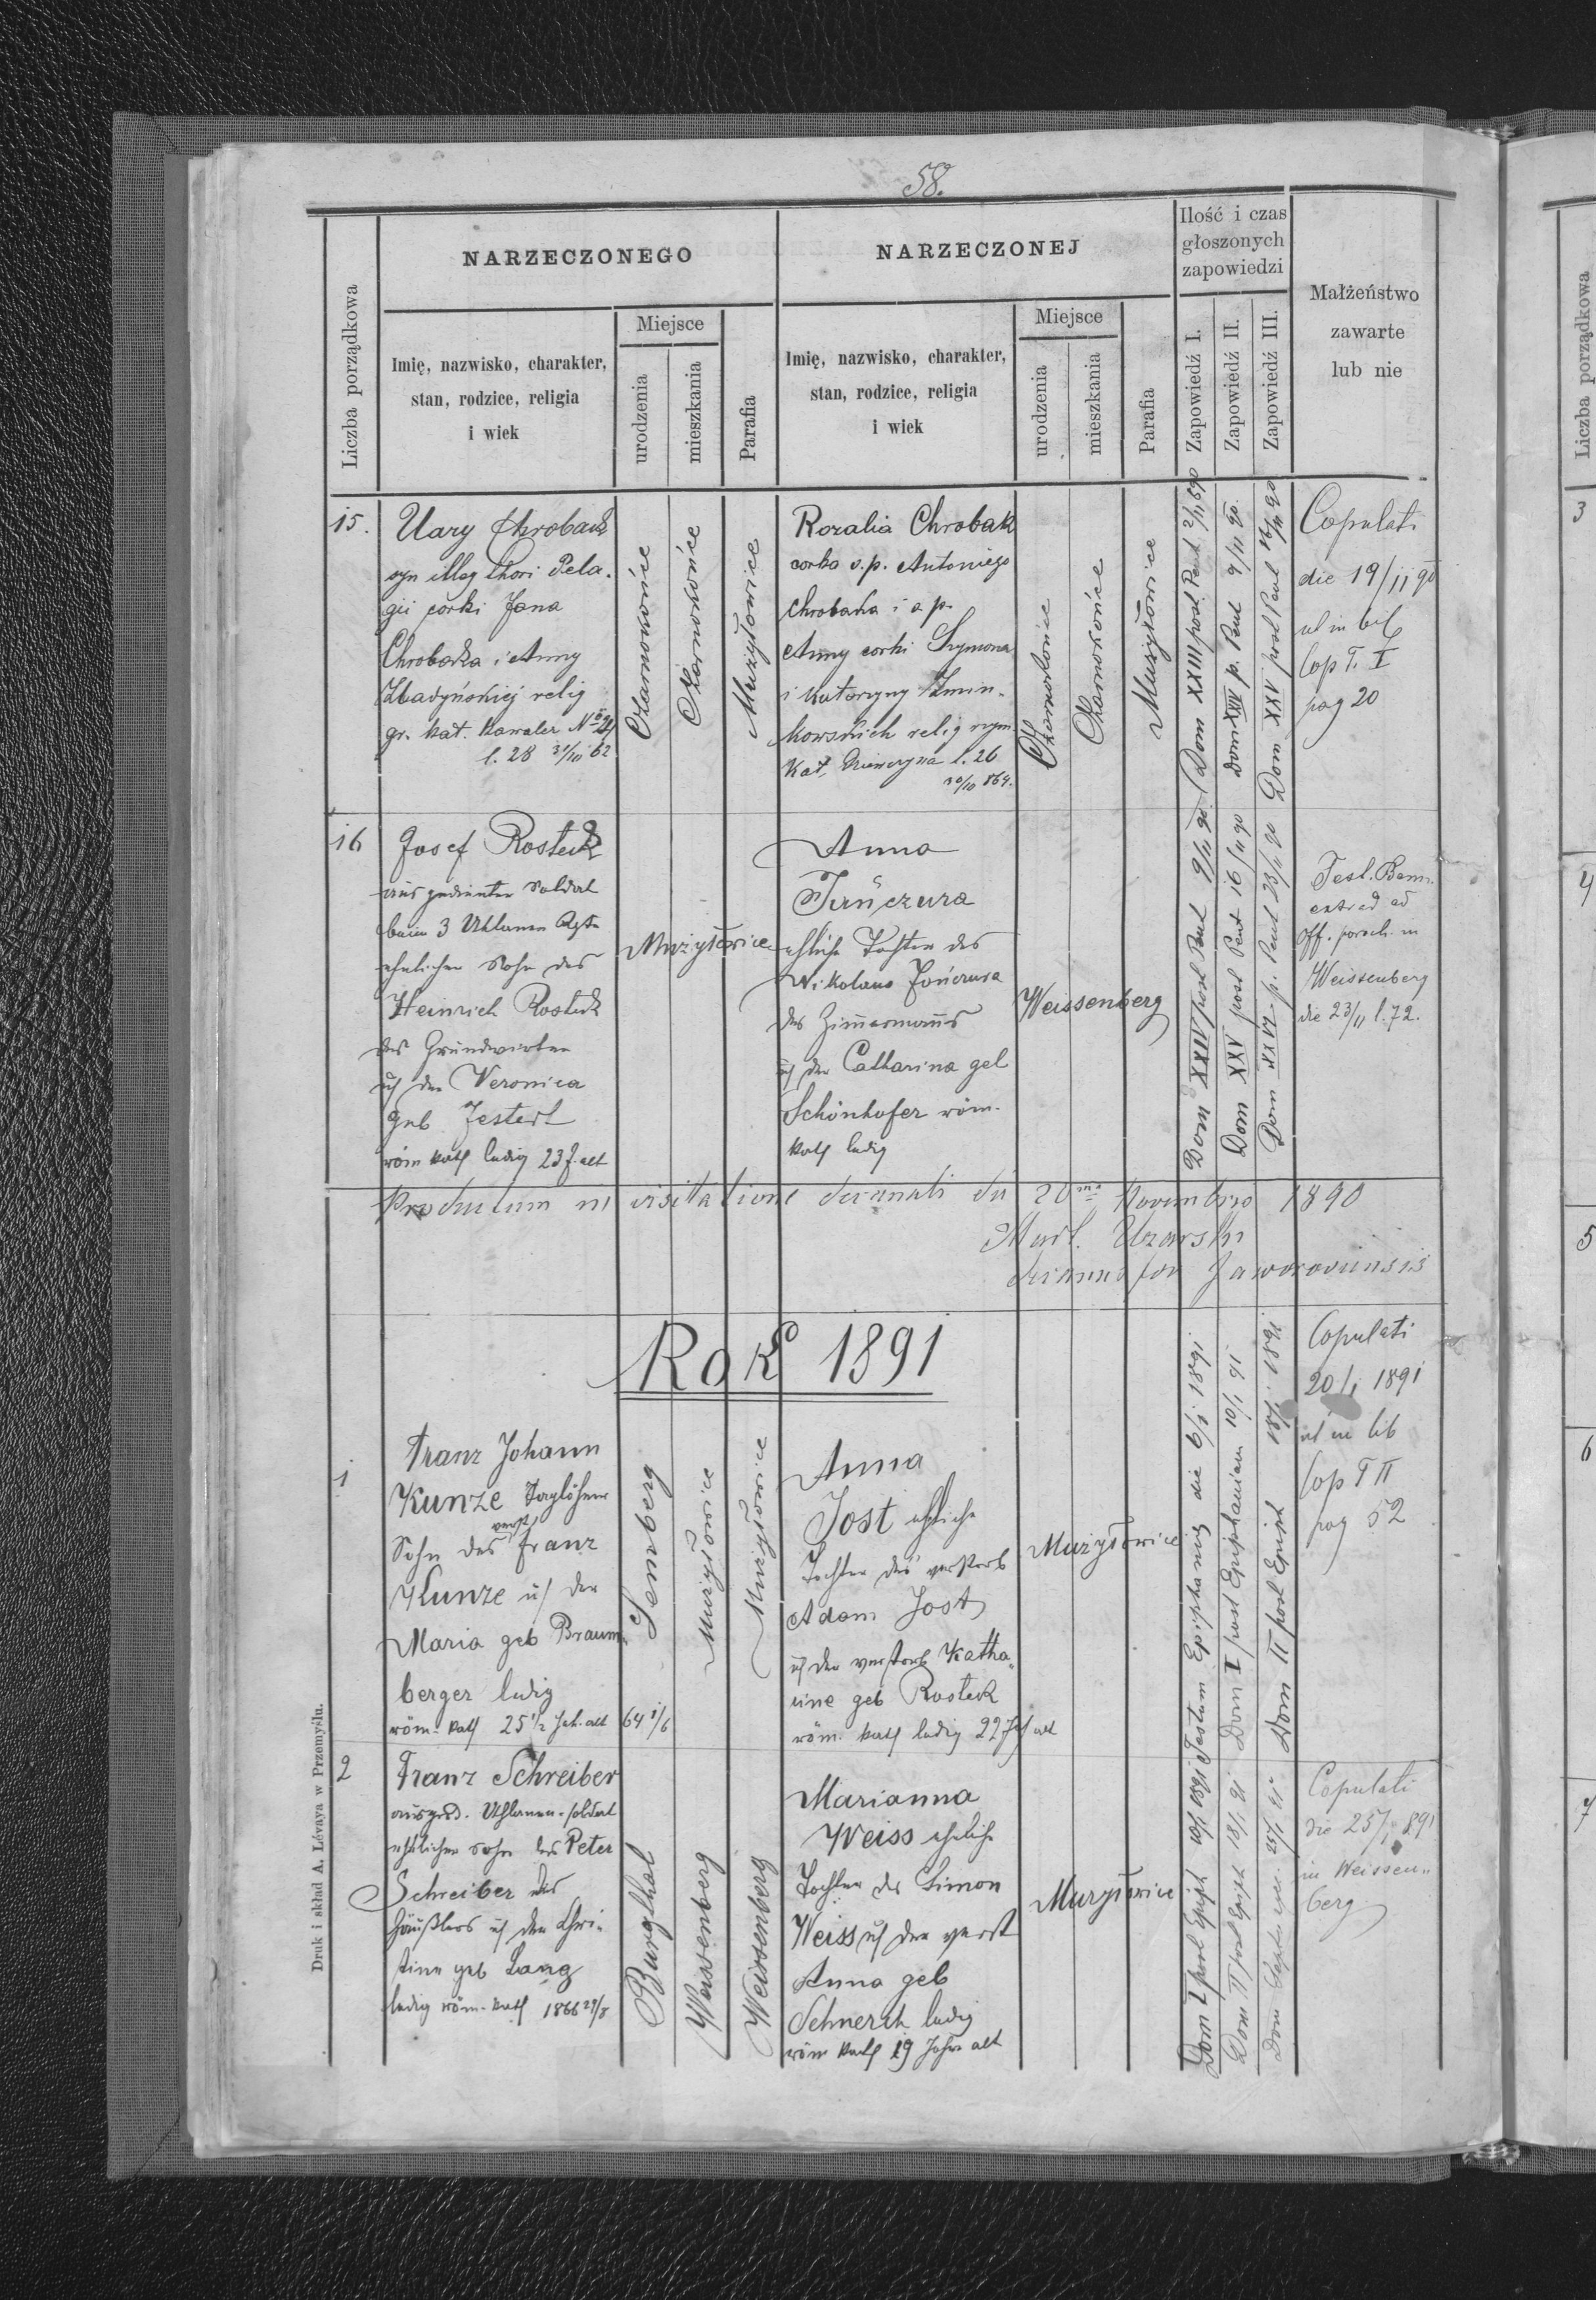 58.
Liczba porządkowa
NARZECZONEGO
Imię, nazwisko, charakter,
stan, rodzice, religia
i wiek
Miejsce
urodzenia
mieszkania
Parafia
NARZECZONEJ
Imię, nazwisko, charakter,
stan, rodzice, religia
i wiek
Miejsce
urodzenia
mieszkania
Parafia
Ilość i czas
głoszonych
zapowiedzi
Zapowiedź I.
Zapowiedź II.
Zapowiedź III.
Małżeństwo
zawarte
lub nie
15.
Chrobak
syn illeg thori Pela-
gii córki Jana
Chrobaka i Anny
relig
gr. kat. kawaler
l. 28 31/10 62
Czarnokońce
Czarnokońce
Mużyłowice
Rozalia Chrobak
corka s.p. Antoniego
Chrobaka i s p.
Anny corki Szymona
i Katarzyny Zmin-
kowskich relig rzym
kat, dziewczyna l. 26
30/10 864.
Czarnokońce
Czarnokońce
Mużyłowice
Dom XXIII post Pent 2/11 890
Dom XXIV p. Pent 9/11 90.
Dom XXV post Pent 16/11 90
Copulati
die 19/11 90
ut in lib
Cop T. I
pag 20
16
Josef Rosteck
ausgedienter Soldat
beim 3 Uhlanen Rgte
ehelicher Sohn des
Heinrich Rosteck
des Grundwirten
u der Veronica
geb Jesterl
röm kath ledig 23 J. alt
Mużyłowice
Anna
Juńczura
ehliche Tochter des
Nikolaus Jończura
des Zimmermanns
u der Catharina geb
Schönhofer röm-
kath ledig
Weissenberg
Dom XXIV post Pent 9/11 90.
Dom XXV post Pent 16/11 90
Dom XXVI p. Pent 23/11 90
Test. Bann.
extrad ad
Off. paroch. in
Weissenberg
die 23/11 l. 72.
Productum in visitatione decanali die 20ma Novembro 1890
Mart. Uzarski
decanus for Jaworoviensis
Rok 1891
1
Franz Johann
Kunze Taglöhner
Sohn des verst Franz
Kunze u der
Maria geb Braum-
berger ledig
röm- kath 25 1/2 Jah. alt
64 1/6
Lemberg
Mużyłowice
Mużyłowice
Anna
Jost ehliche
Tochter des verstorb
Adam Jost
u der verstorb Katha-
rine geb Rosteck
röm. kath ledig 22 Jah alt
Mużyłowice
Festum Epiphaniæ die 6/1 1891
Dom I post Epiphaniam 10/1 91
Dom II post Epiph 18/1 1891
Copulati
20/1 1891
ut in lib
Cop T II
pag 52
2
Franz Schreiber
ausged. Uhlanen-soldat
ehelicher Sohn des Peter
Schreiber des
Häußlers u der Chri-
stine geb Lang
ledig röm-kath 1866 29/8
Burgthal
Weissenberg
Weissenberg
Marianna
Weiss eheliche
Tochter des Simon
Weiss u der verst
Anna geb
Schnerch ledig
röm kath 19 Jahre alt
Mużyłowice
Dom I post Epiph 10/1 1891
Dom II post Epiph 18/1 91
Dom 25/1 91
Copulati
die 25/1 891
in Weissen-
berg
Druk i skład A. Lévaya w Przemyślu.
Liczba porządkowa
3
4
5
6
7